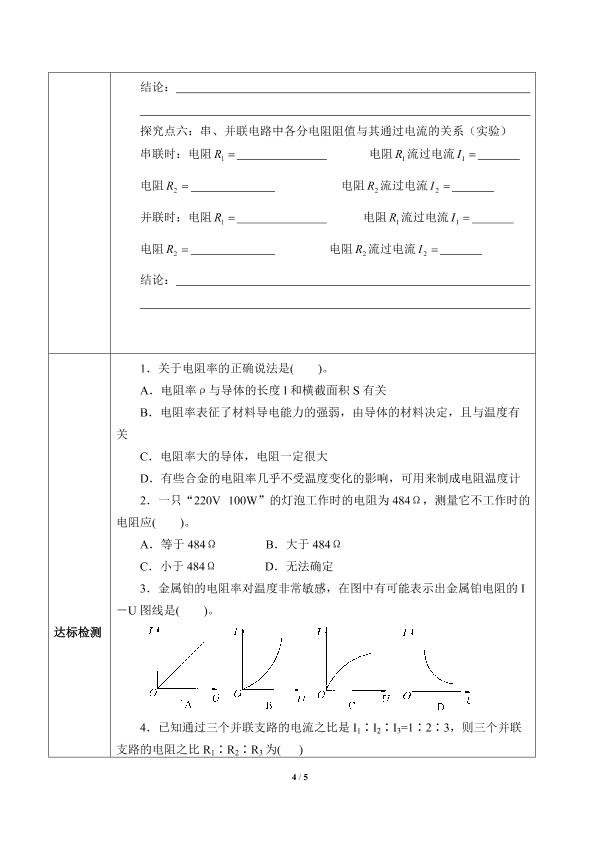 结论：
探究点六：串、并联电路中各分电阻阻值与其通过电流的关系（实验）
串联时：电阻R₁＝ 电阻R₁流过电流I₁＝
电阻R₂＝ 电阻R₂流过电流I₂＝
并联时：电阻R₁＝ 电阻R₁流过电流I₁＝
电阻R₂＝ 电阻R₂流过电流I₂＝
结论：
达标检测
1．关于电阻率的正确说法是(　　)。
A．电阻率ρ与导体的长度l和横截面积S有关
B．电阻率表征了材料导电能力的强弱，由导体的材料决定，且与温度有
关
C．电阻率大的导体，电阻一定很大
D．有些合金的电阻率几乎不受温度变化的影响，可用来制成电阻温度计
2．一只“220V 100W”的灯泡工作时的电阻为484Ω，测量它不工作时的
电阻应(　　)。
A．等于484Ω B．大于484Ω
C．小于484Ω D．无法确定
3．金属铂的电阻率对温度非常敏感，在图中有可能表示出金属铂电阻的I
－U图线是(　　)。
I I I I
O U O U O U O
A B C D
4．已知通过三个并联支路的电流之比是I₁∶I₂∶I₃=1∶2∶3，则三个并联
支路的电阻之比R₁∶R₂∶R₃为(　　)
4 / 5